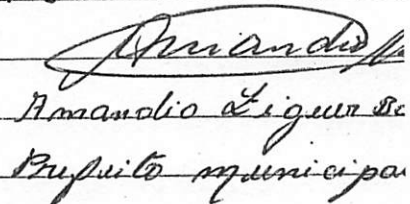 Amandio
Amandio Ligeur
Prefeito municipa